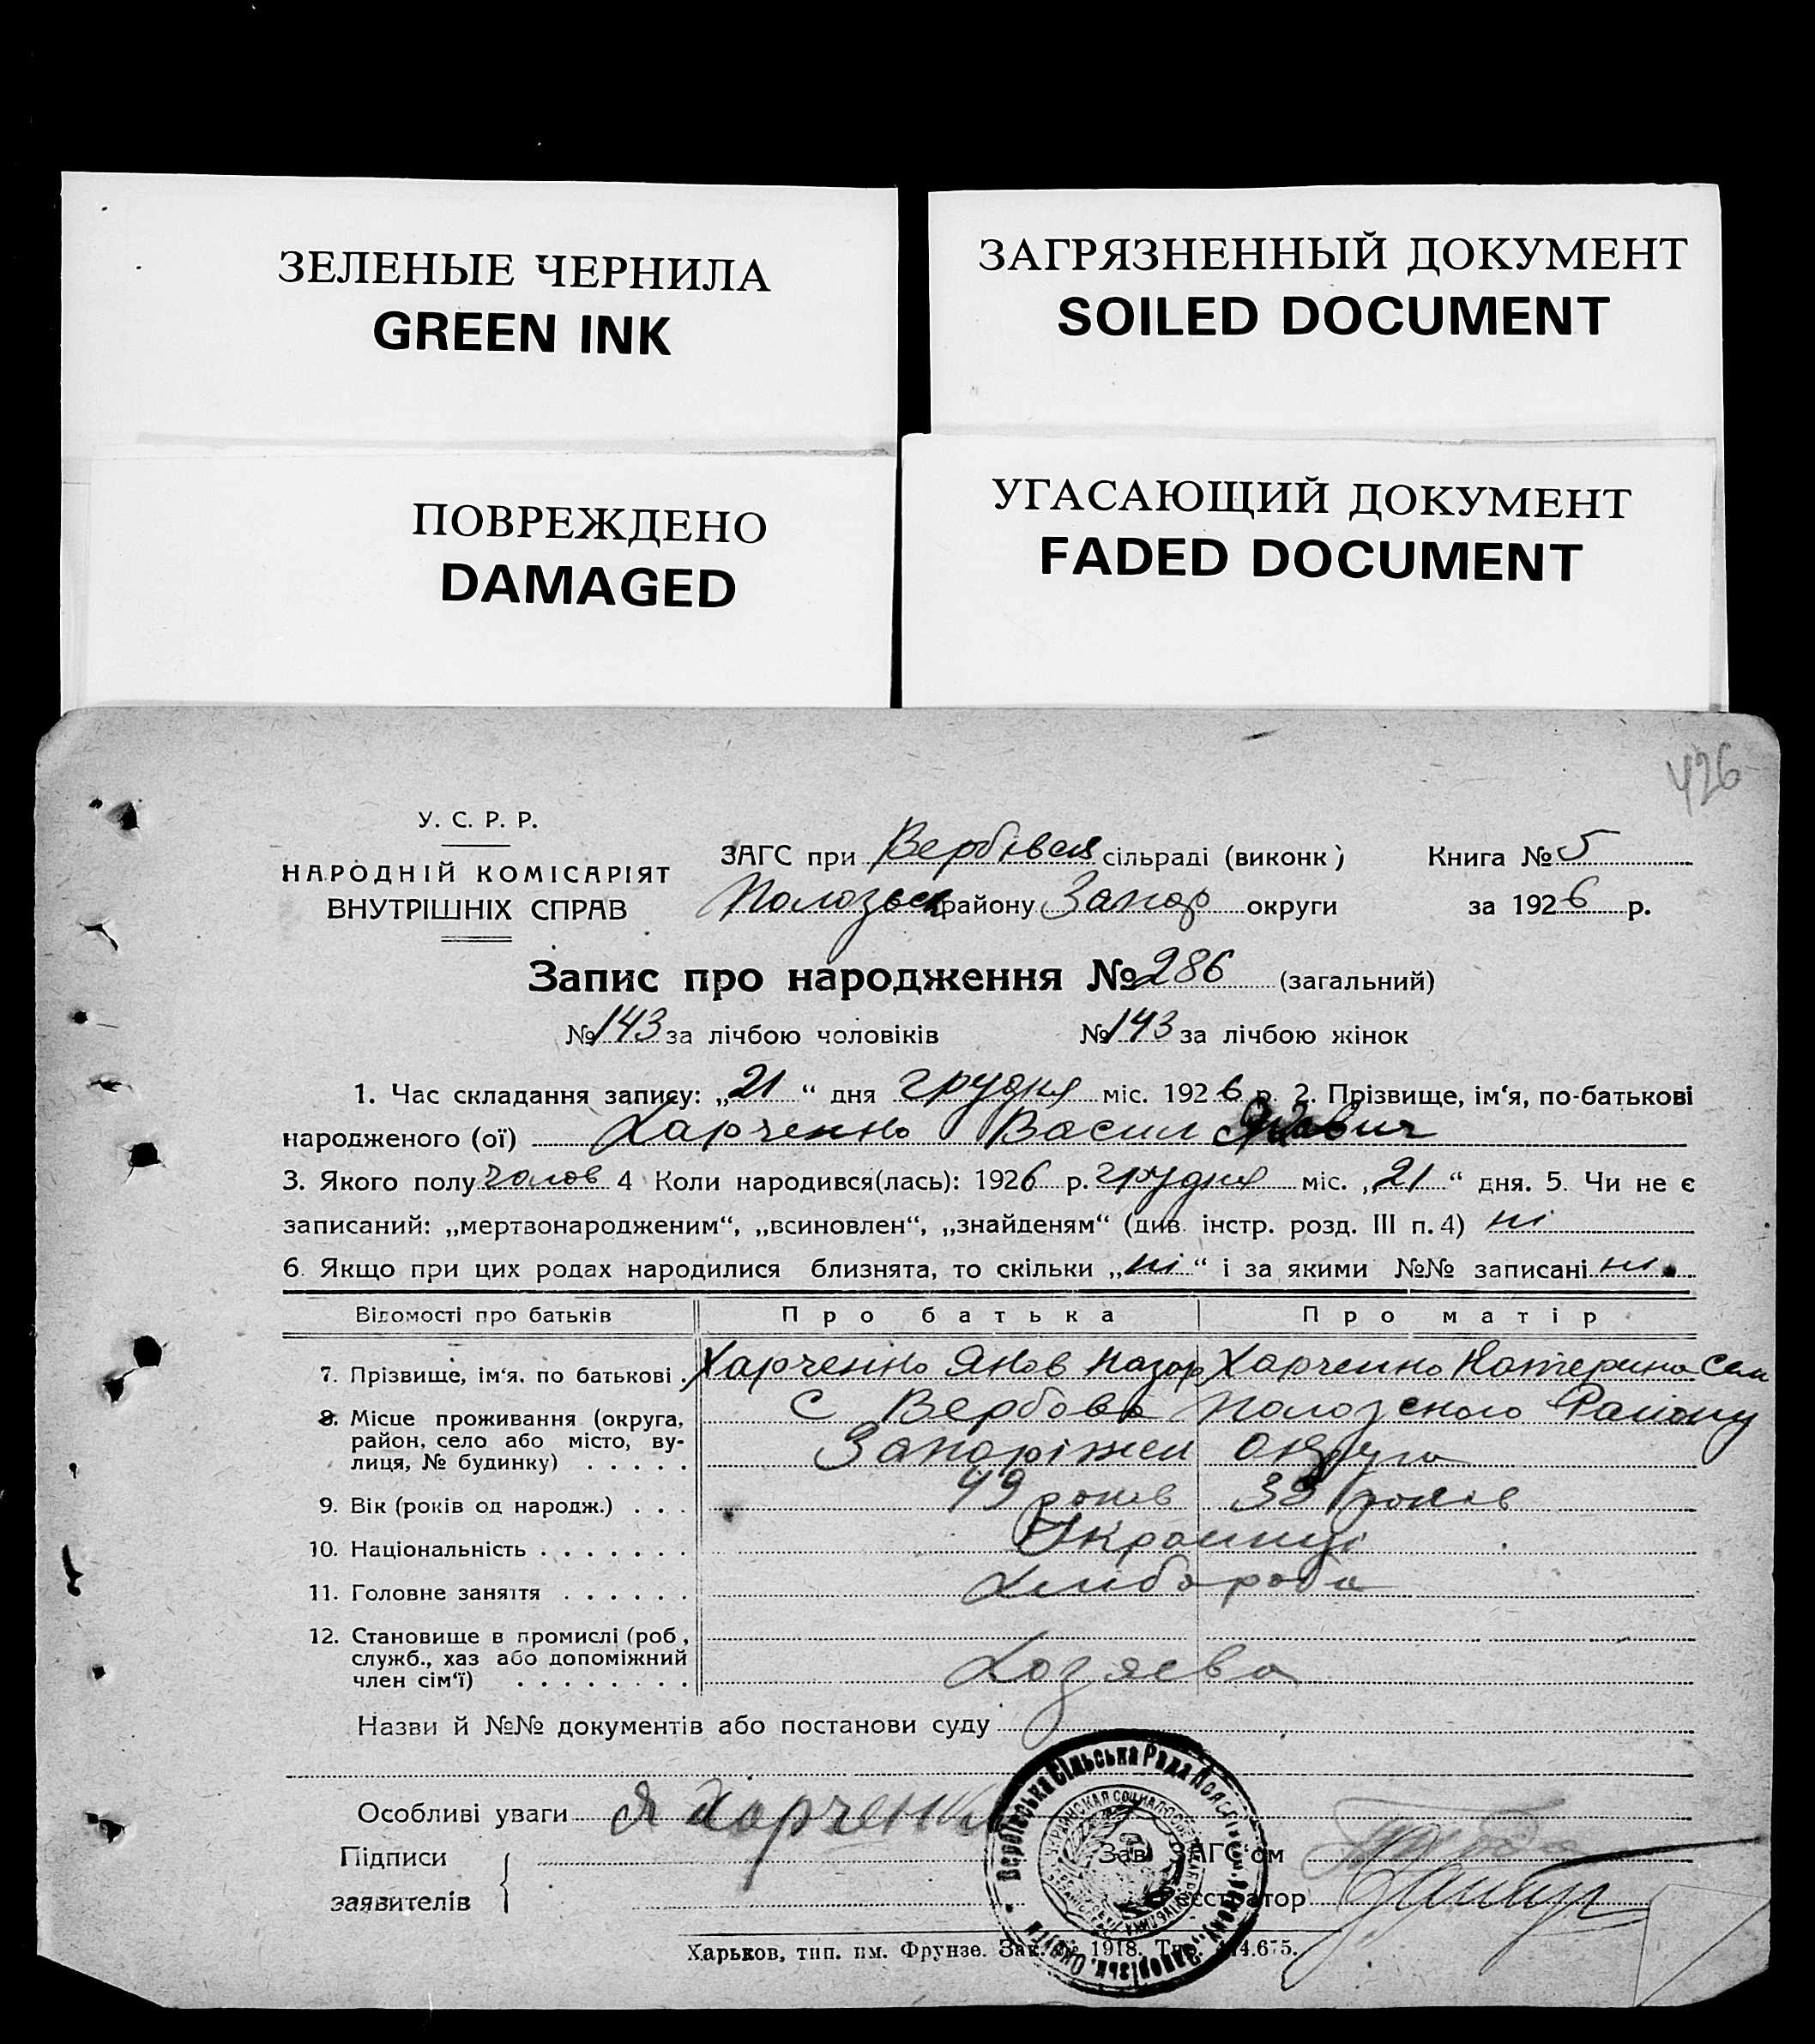 ЗЕЛЕНЫЕ ЧЕРНИЛА
GREEN INK
ЗАГРЯЗНЕННЫЙ ДОКУМЕНТ
SOILED DOCUMENT
ПОВРЕЖДЕНО
DAMAGED
УГАСАЮЩИЙ ДОКУМЕНТ
FADED DOCUMENT
426
У. С. Р. Р.
НАРОДНІЙ КОМІСАРІЯТ
ВНУТРІШНІХ СПРАВ
ЗАГС при сільраді (виконк) Книга № 5
Полозьск району Запор округи за 1926 р.
Запис про народження № 286 (загальний)
№ 143 за лічбою чоловіків № 143 за лічбою жінок
1. Час складання запису: „21“ дня грудня міс. 1926 р. 2. Прізвище, ім‘я, по-батькові
народженого (ої) Харченко Васил
3. Якого полу чолов 4 Коли народився(лась): 1926 р. грудня міс. „21“ дня. 5. Чи не є
записаний: „мертвонародженим“, „всиновлен“, „знайденям“ (див. інстр. розд. III п. 4) ні
6. Якщо при цих родах народилися близнята, то скільки „ні“ і за якими №№ записані ні
Відомості про батьків Про батька Про матір
7. Прізвище, ім‘я, по батькові . Харченко Яков Назар Харченко Катерина Сем
8. Місце проживання (округа, район, село або місто, вулиця, № будинку) . . . . . С Вербове Полозского Району
Запоріжск округа
9. Вік (років од народж.) . . . 49 роков 38 роков
10. Національність . . . . . . . Украинці
11. Головне заняття . . . . . . Хлибороба
12. Становище в промислі (роб., служб., хаз або допоміжний член сім‘ї) . . . . . . . . Хозяева
Назви й №№ документів або постанови суду
Особливі уваги Я Харченко
Підписи
заявителів
Зав. ЗАГС‘ом
Реєстратор
Вербівська Сільська Рада
Харьков, тип. им. Фрунзе. Зак. № 1918.